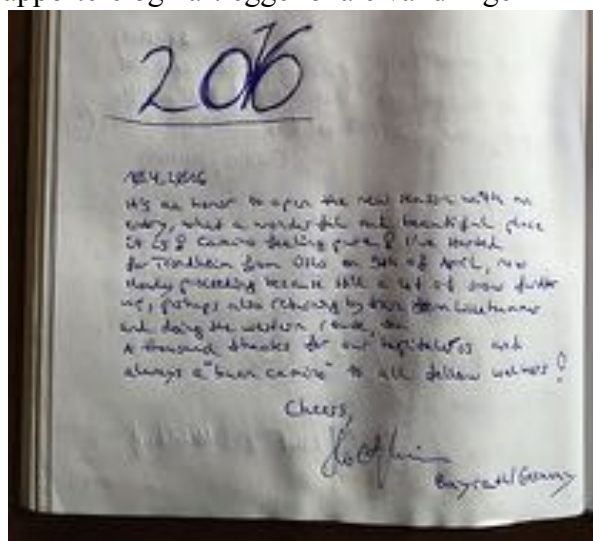 2016
4.2016
It's an honor to open the new season with an
entry, what a wonderful and beautiful place
it is! Camino feeling pure! I've started
for Trondheim from Oslo on 5th of April, now
slowly proceeding because still a lot of snow further
up, perhaps also returning by train from Lillehammer
and doing the western route,
A thousand thanks for our hospitaleros and
always a "buen camino" to all fellow walkers!
Cheers,
Bayreuth/Germany